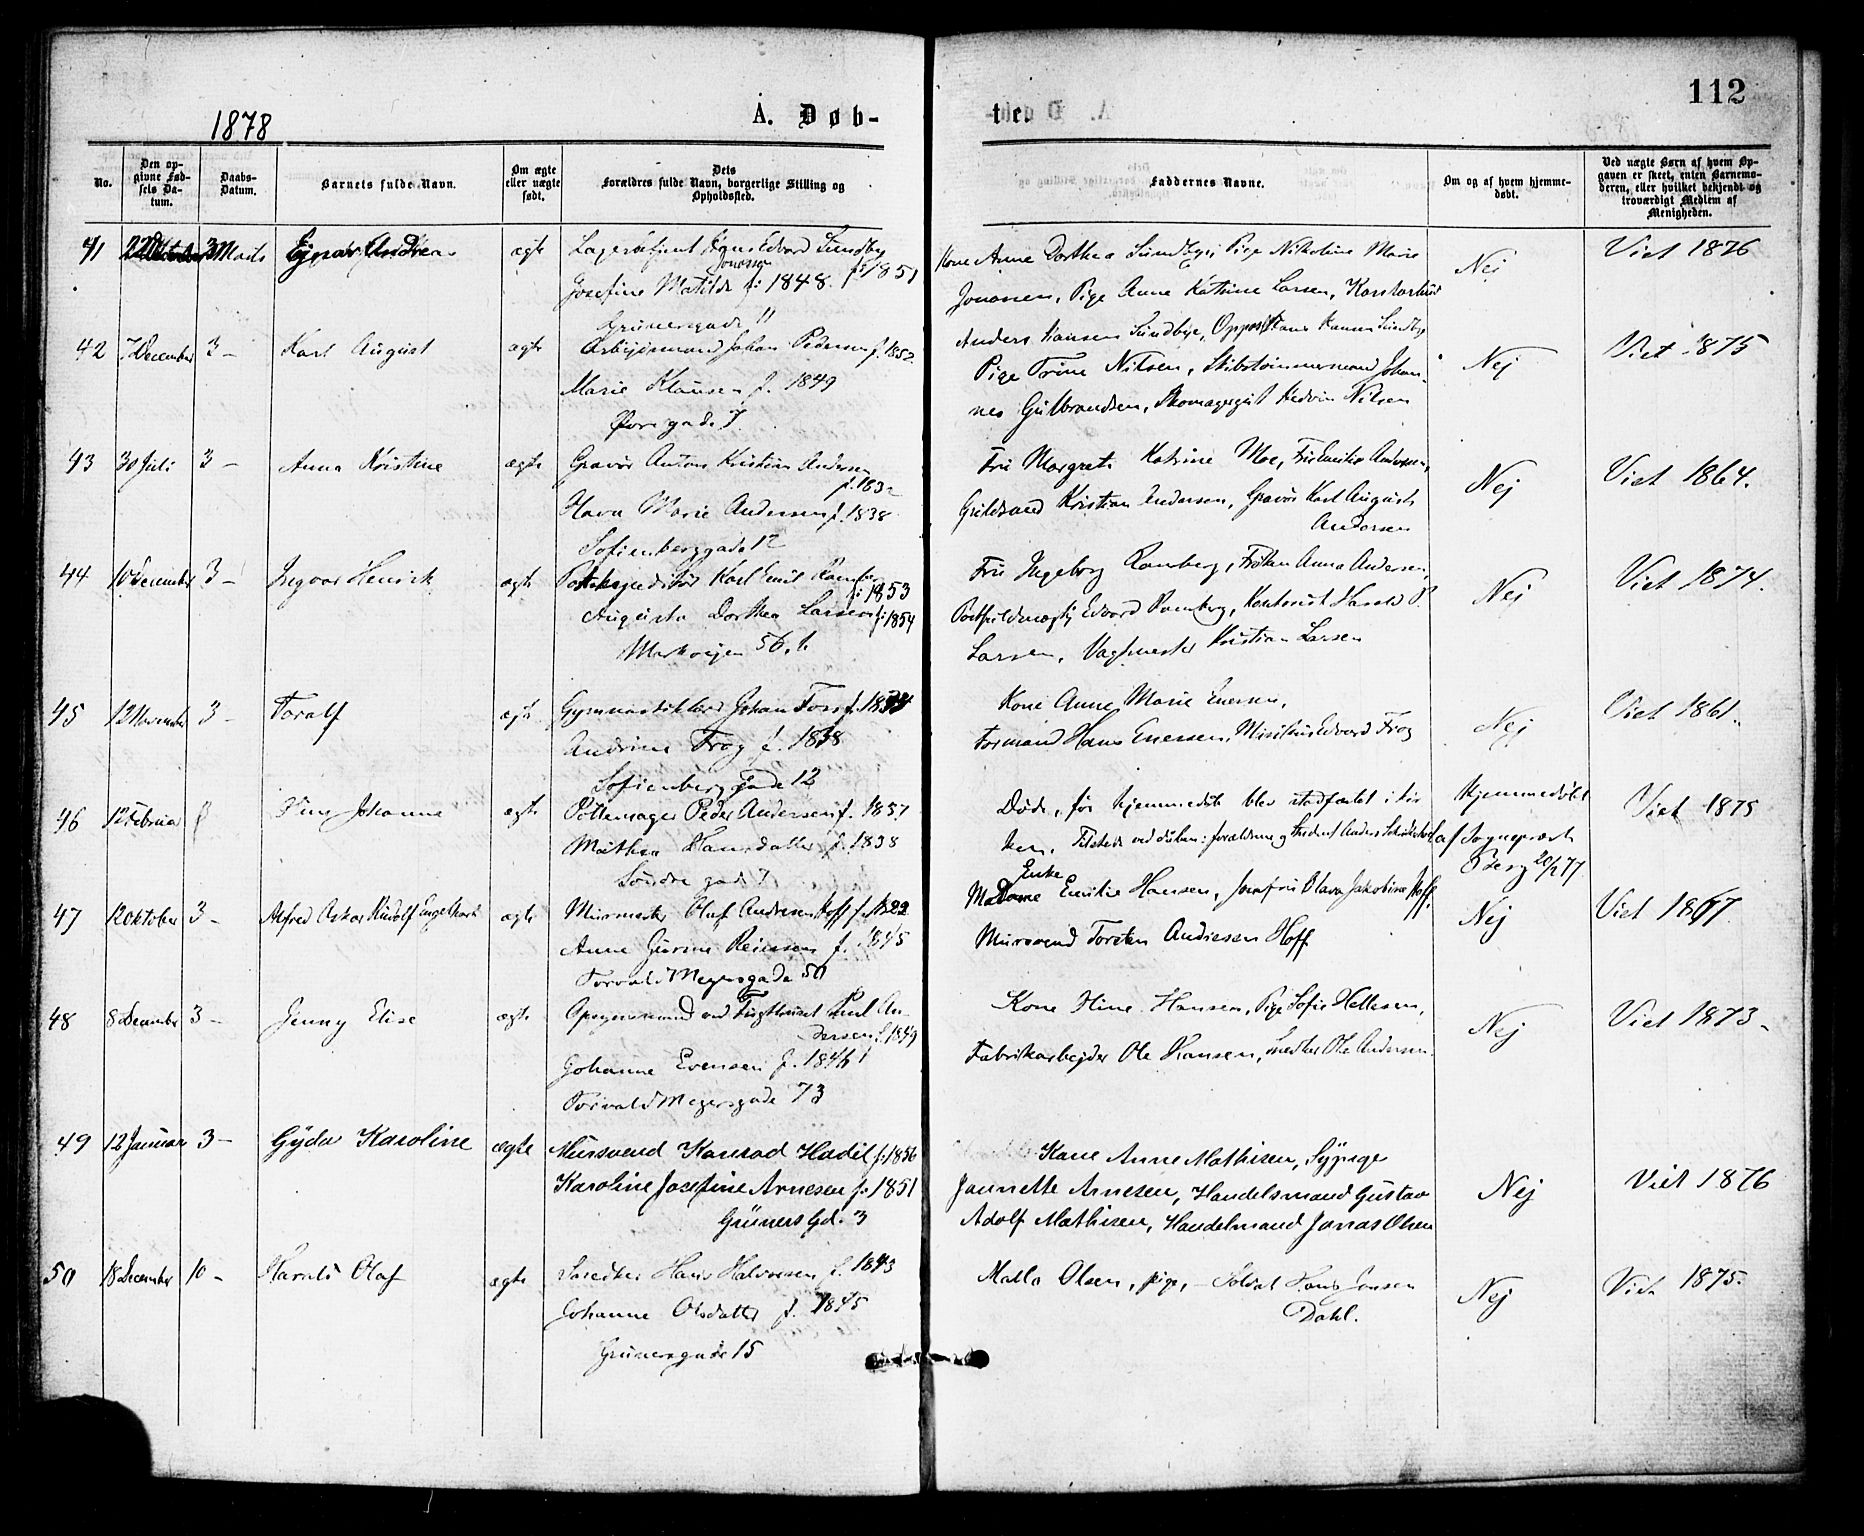 112
1878
A. Døb-
te.
No.
Den op-
givne Fød-
sels Da-
tum.
Daabs-
Datum.
Barnets fulde Navn.
Om ægte
eller uægte
født.
Dets
Forældres fulde Navn, borgerlige Stilling og
Opholdssted.
Faddernes Navne.
Om og af hvem hjemme-
døbt.
Ved uægte Børn af hvem Op-
gaven er skeet, enten Barnemo-
deren, eller hvilket bekjendt og
troværdigt Medlem af
Menigheden.
41 3 Marts Ejnar Andreas ægte Edvard Sundby
Jonassen f. 1851
Josefine Matilde f. 1848.
Grünersgade 11
Kone Anne Dorthea Sundbye, Pige Nikoline Marie
Jonassen, Pige Anne Katrine Larsen,
Anders Hansen Sundbye, Hans Hansen Sundby
Nej
Viet 1876
42 7 December 3 - Karl August ægte Arbeidsmand Johan Pedersen f. 1852.
Marie Klausen f. 1849
Øvregade 7
Pige Trine Nilsen, Skibstømmermand Johan-
nes Gulbrandsen, Hedvin Nilsen
Nej
Viet 1875
43 30 Juli 3 - Anna Kristine ægte Gravør Anton Kristian Andersen
f. 1832
Hava Marie Andersen f. 1838
Sofienberggade 12
Fru Margrete Katrine Moe, Fru Emilie Andersen,
Guldsmed Kristian Andersen, Gravør Karl August
Andersen
Nej
Viet 1864.
44 10 December 3 - Ingvar Henrik ægte Postekspeditør Karl Emil Ramberg
f. 1853
Augusta Dorthea Larsen f. 1854
Markveien 56, b
Fru Ingeborg Ramberg, Frøken Anna Andersen,
Postfuldmægtig Edvard Ramberg, Kontorist Harald P.
Larsen, Vagtmester Kristian Larsen
Nej
Viet 1874.
45 12 November 3 - Toralf ægte Gymnastiklærer Johan Foss f. 1834
Andrine Frog f. 1838
Sofienberggade 12
Kone Anne Marie Enersen,
Formand Hans Enersen, Edvard Frog
Nej
Viet 1861.
46 12 Februar Johanne ægte Pottemager Peder Andersen f. 1851
Mathea Hansdatter f. 1838
Søndre gade 7
Døde, før Hjemmedåb blev stadfæstet i kir
ken. Tilstede ved dåben: forældrene og Student Anders
Hjemmedøbt
af Sognepræst
Berg 20/2 77
Viet 1875
47 12 Oktober 3 - Alfred Oskar Rudolf Engelhart ægte Murmester Oluf Andresen Hoff f. 1822
Anne Gurine Reiersen f. 1845
Torvald Meyersgade 50
Enke
Madame Emilie Hansen, Jomfru Olava Jakobine Hoff,
Mursvend Torsten Andresen Hoff
Nej
Viet 1867
48 8 December 3 - Jenny Elise ægte Opsynsmand ved Tugthuset Paul An-
dersen f. 1849
Johanne Evensen f. 1846
Torvald Meyersgade 73
Kone Hansen, Pige Sofie Hellesen,
Fabrikarbejder Ole Hansen, Snedker Ole Andersen
Nej
Viet 1873.
49 12 Januar 3 - Gyda Karoline ægte Mursvend Konrad Hadil f. 1856
Karoline Josefine Arnesen f. 1851
Grüners Gd. 3
Kone Anne Mathisen, Sypige
Jannette Arnesen, Handelsmand Gustav
Adolf Mathisen, Handelmand Jonas Olsen
Nej
Viet 1876
50 18 December 10 - Harald Olaf ægte Snedker Hans Halvorsen f. 1843
Johanne Olsdatter f. 1845
Grünersgade 15
Malla Olsen, pige, - Soldat Hans Jonsen
Dahl.
Nej
Viet 1875.